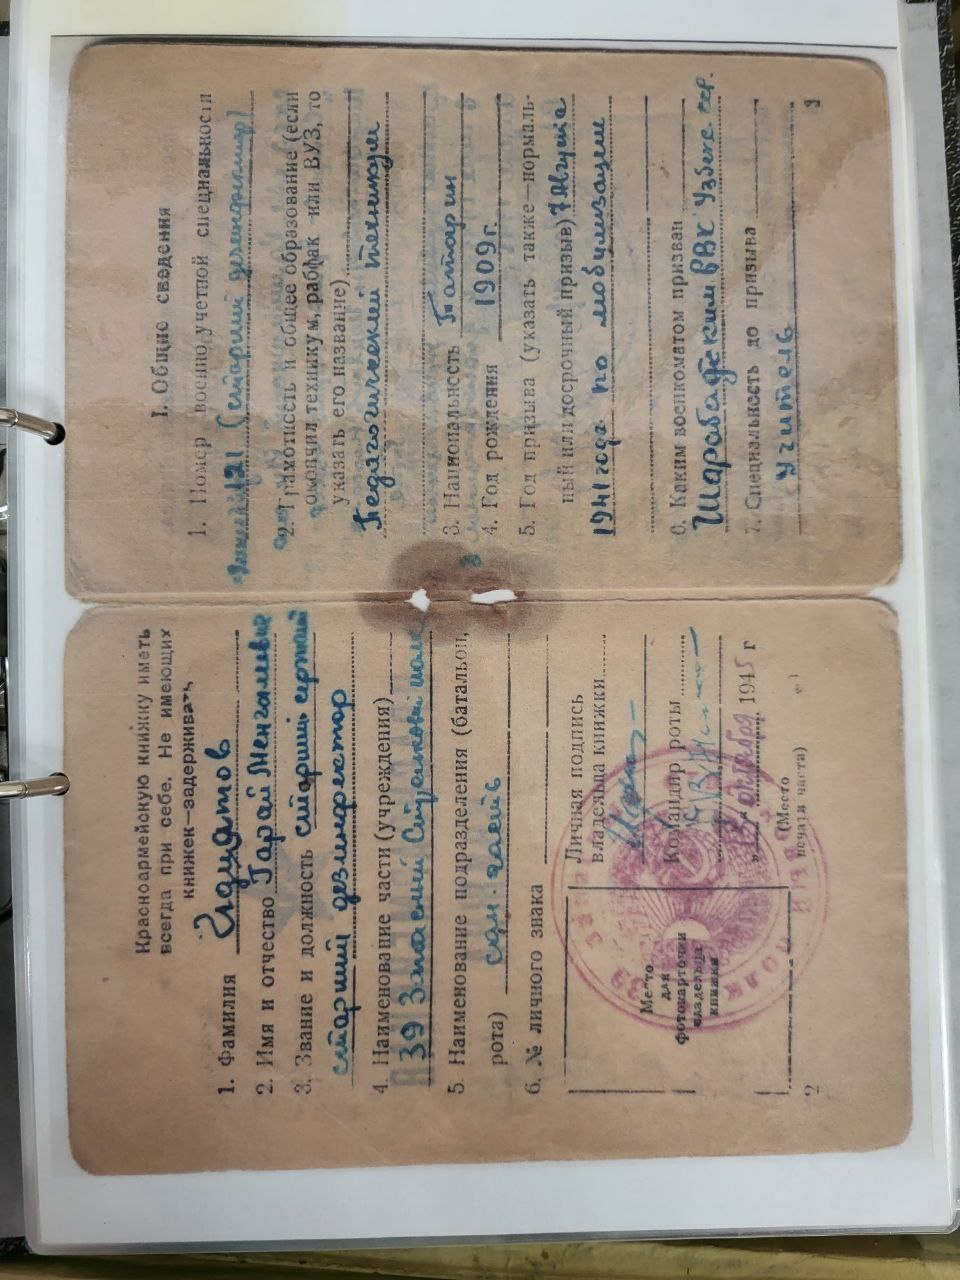 Красноармейскую книжку иметь
всегда при себе. Не имеющих
книжек—задерживать
1. Фамилия
2. Имя и отчество Гарай
3. Звание и должность старший сержант
старший дезинфектор
4. Наименование части (учреждения)
39 Запасной Стрелковый полк
5. Наименование подразделения (батальон,
рота) сан. часть
6. № личного знака
Место
для
фотокарточки
владельца
книжки
Личная подпись
владельца книжки
Командир роты
1945 г
(Место
печати части)
2
I. Общие сведения
1. Номер военно учетной специальности
121 (старший дезинфектор)
2. Грамотность и общее образование (если
окончил техникум, рабфак или ВУЗ, то
указать его название)
Педагогический техникум
3. Национальность Татарин
4. Год рождения 1909 г.
5. Год призыва (указать также—нормаль-
ный или досрочный призыв) 7 Августа
1941 года по мобилизации
6. Каким военкоматом призван
Шарабадским РВК Узбек. сср.
7. Специальность до призыва
Учитель
3